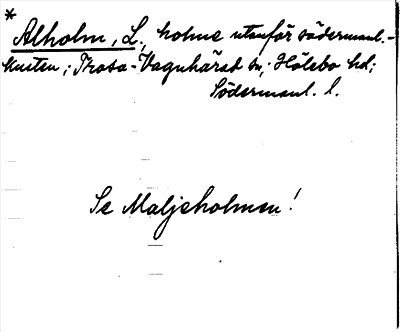 *
Alholm, L., holme utanför södermanl.-
kusten; Trosa-Vagnhärad sn; Hölebo hd;
Södermanl. l.
Se Maljeholmen!